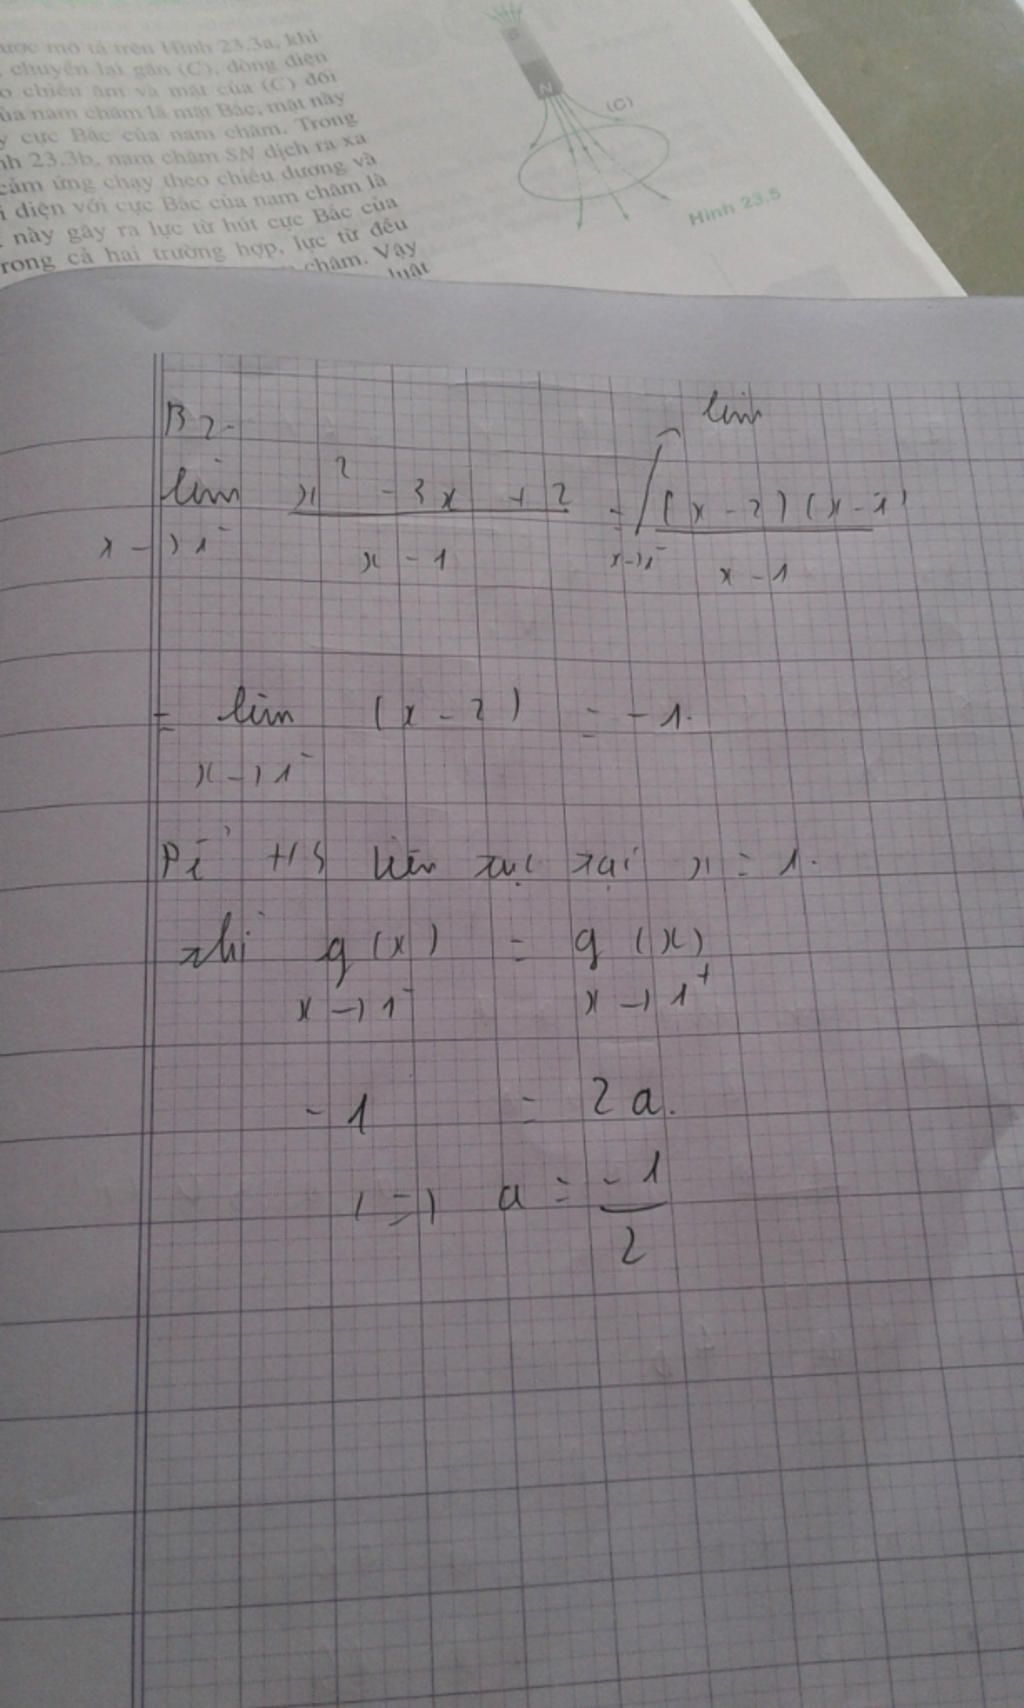 ược mô tả trên Hình 23.3a, khi
chuyển lại gần (C), dòng điện
o chiều âm và mặt của (C) đối
ủa nam châm là mặt Bắc, mặt này
y cực Bắc của nam châm. Trong
nh 23.3b, nam châm SN dịch ra xa
cảm ứng chạy theo chiều dương và
i diện với cực Bắc của nam châm là
này gây ra lực từ hút cực Bắc của
rong cả hai trường hợp, lực từ đều
châm. Vậy
luật
S
N
(C)
Hình 23.5
B2.
lim x² - 3x + 2 = lim (x - 2)(x - 1)
x -> 1⁻ x - 1 x -> 1⁻ x - 1
= lim (x - 2) = -1.
x -> 1⁻
HS liên tục tại x = 1.
thì g(x) = g(x)
x -> 1⁻ x -> 1⁺
-1 = 2a.
(=) a = -1
2